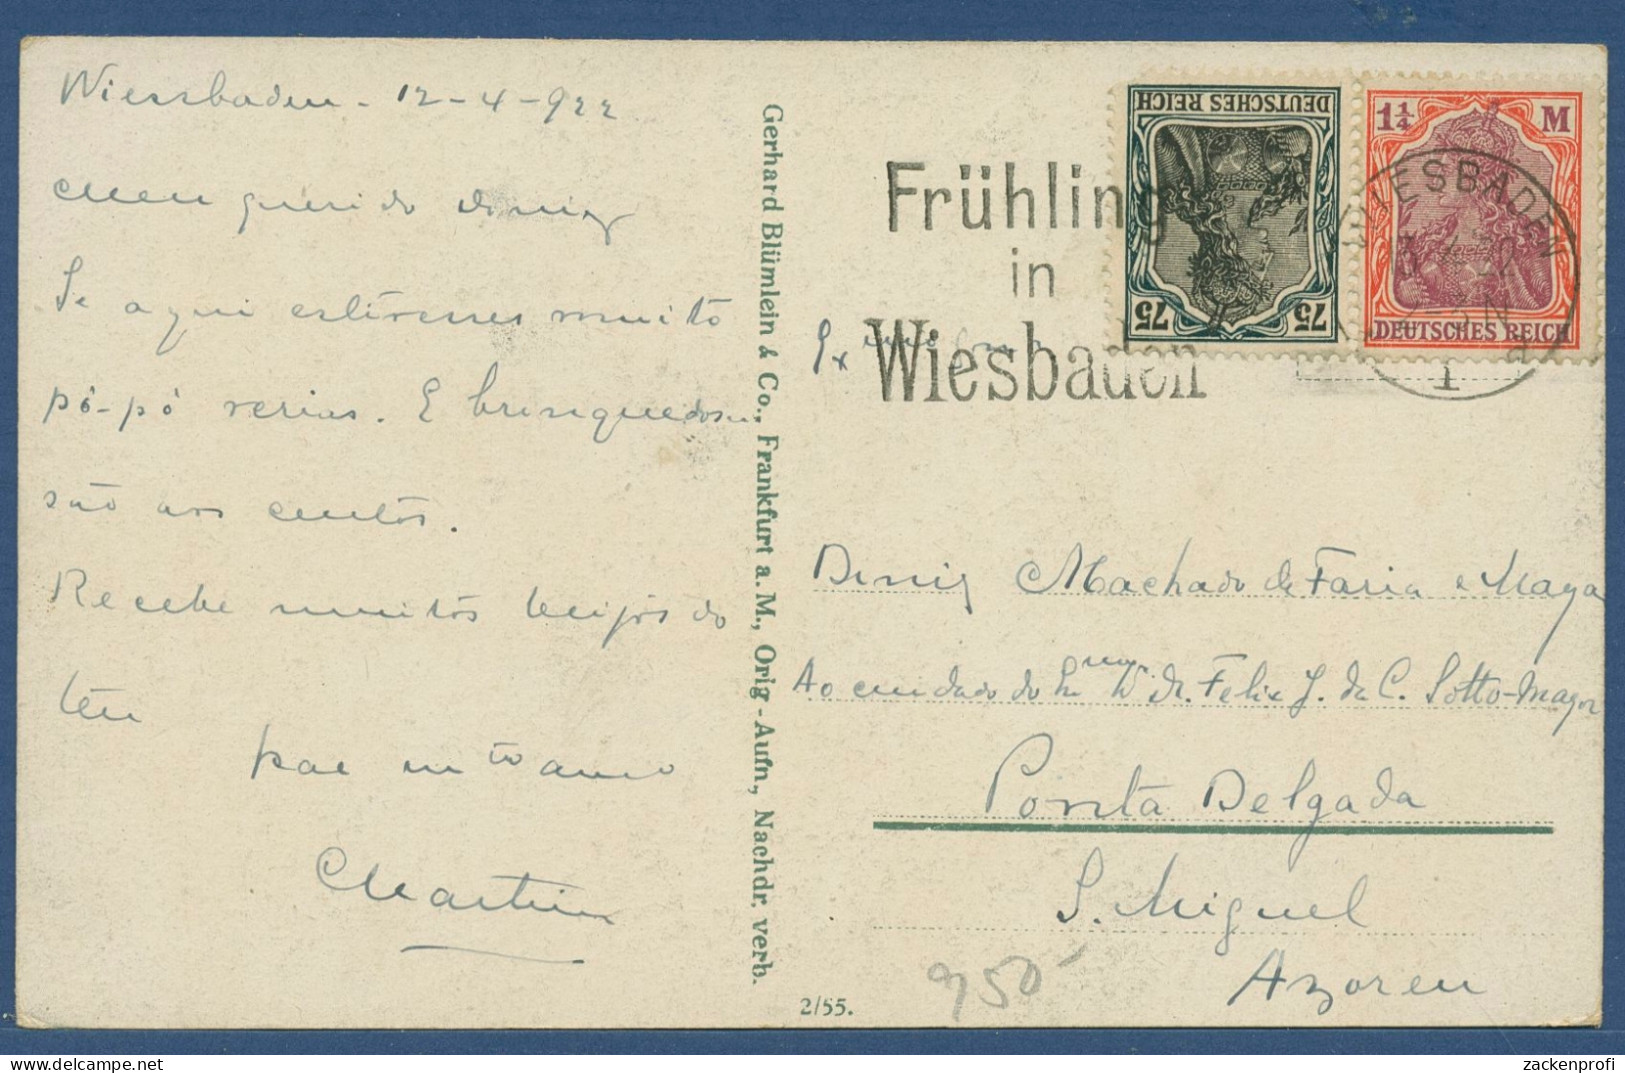 Wiessbaden - 12-4-922
Meu querido Diniz
Se aqui estivesses muito
pó-pó verias. E brinquedos
são aos centos.
Recebe muitos beijos do
teu
pae mto amo
Martim
Gerhard Blümlein & Co., Frankfurt a. M., Orig.-Aufn., Nachdr. verb.
2/55.
Frühling
in
Wiesbaden
DEUTSCHES REICH
75 75
1¼ M
DEUTSCHES REICH
WIESBADEN
1
Exmo Snr
Diniz Machado de Faria e Maya
Ao cuidado do Exmo Sr. Dr. Felix J. da C. Sotto-Mayor
Ponta Delgada
S. Miguel
Azoren
950
zackenprofi